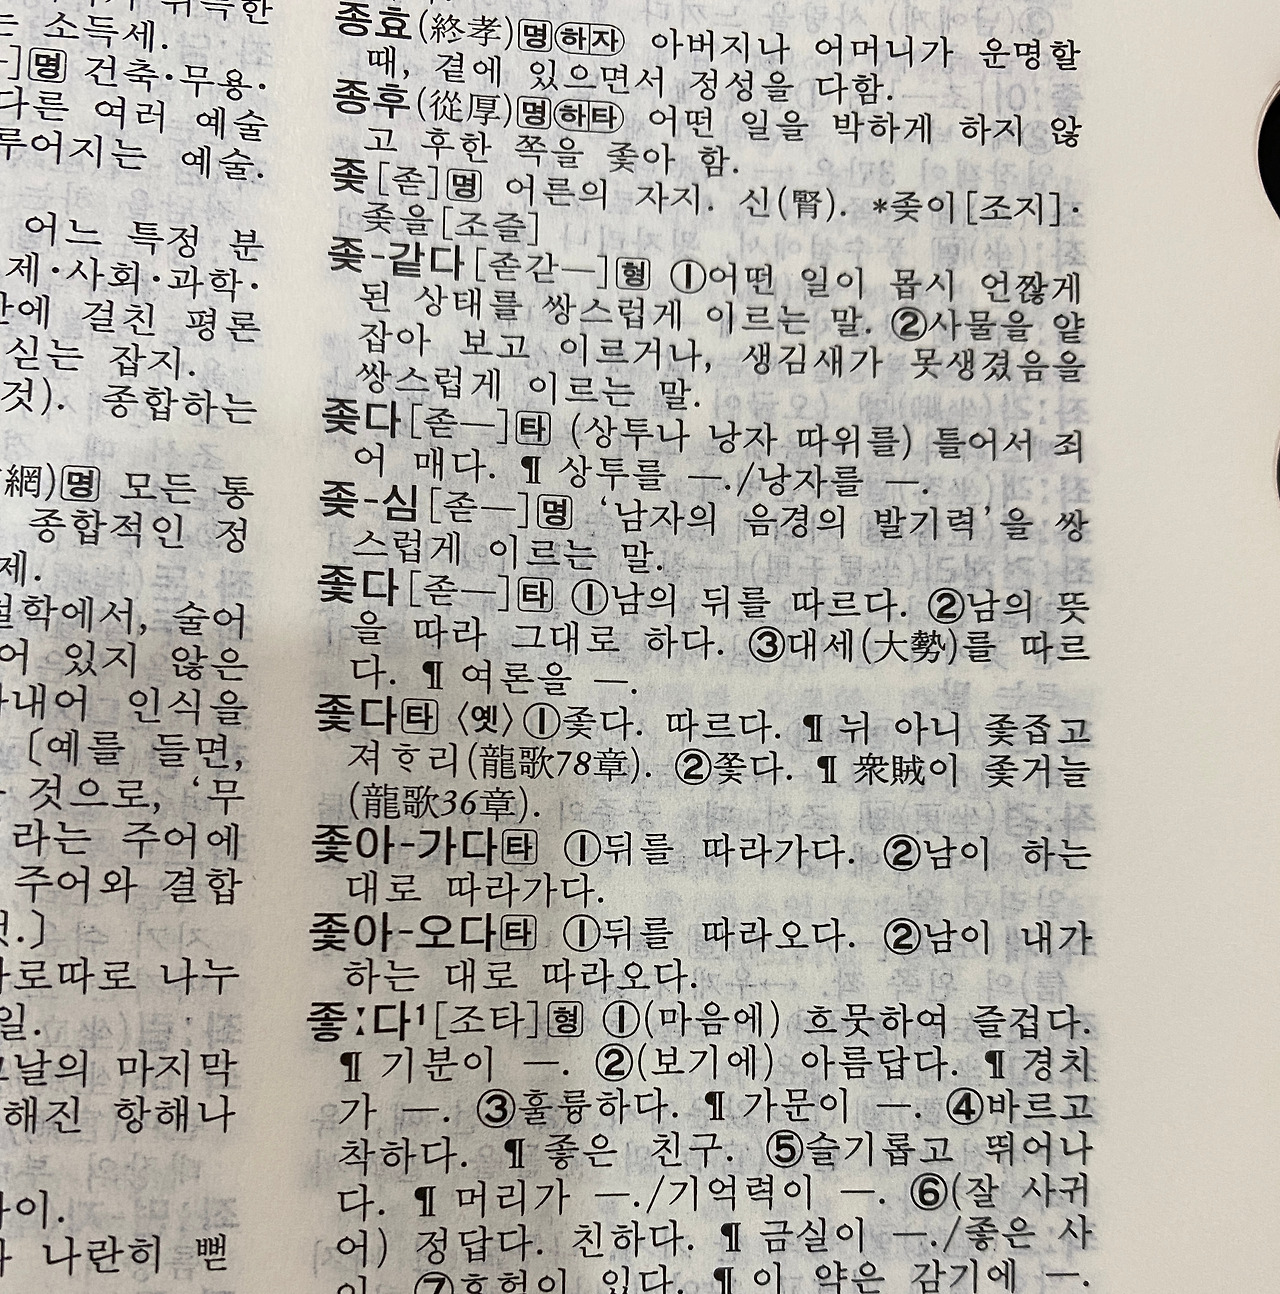 취득한
는 소득세.
명 건축·무용·
다른 여러 예술
루어지는 예술.
어느 특정 분
제·사회·과학·
걸친 평론
싣는 잡지.
것). 종합하는
網)명 모든 통
종합적인 정
제.
철학에서, 술어
어 있지 않은
나내어 인식을
[예를 들면,
것으로, ‘무
라는 주어에
주어와 결합
것.]
따로따로 나누
일.
그날의 마지막
해진 항해나
나란히 뻗
종효(終孝)명하자 아버지나 어머니가 운명할
때, 곁에 있으면서 정성을 다함.
종후(從厚)명하타 어떤 일을 박하게 하지 않
고 후한 쪽을 좇아 함.
좆[졷]명 어른의 자지. 신(腎). *좆이[조지]·
좆을[조즐]
좆-같다[졷간―]형 ①어떤 일이 몹시 언짢게
된 상태를 쌍스럽게 이르는 말. ②사물을 얕
잡아 보고 이르거나, 생김새가 못생겼음을
쌍스럽게 이르는 말.
좆다[졷―]타 (상투나 낭자 따위를) 틀어서 죄
어 매다. ¶ 상투를 ―./낭자를 ―.
좆-심[졷―]명 ‘남자의 음경의 발기력’을 쌍
스럽게 이르는 말.
좇다[졷―]타 ①남의 뒤를 따르다. ②남의 뜻
을 따라 그대로 하다. ③대세(大勢)를 따르
다. ¶ 여론을 ―.
좇다타 〈옛〉①좇다. 따르다. ¶ 뉘 아니 좇잡고
져ᄒᆞ리(龍歌78章). ②쫓다. ¶ 衆賊이 좇거늘
(龍歌36章).
좇아-가다타 ①뒤를 따라가다. ②남이 하는
대로 따라가다.
좇아-오다타 ①뒤를 따라오다. ②남이 내가
하는 대로 따라오다.
좋:다¹[조타]형 ①(마음에) 흐뭇하여 즐겁다.
¶ 기분이 ―. ②(보기에) 아름답다. ¶ 경치
가 ―. ③훌륭하다. ¶ 가문이 ―. ④바르고
착하다. ¶ 좋은 친구. ⑤슬기롭고 뛰어나
다. ¶ 머리가 ―./기억력이 ―. ⑥(잘 사귀
어) 정답다. 친하다. ¶ 금실이 ―./좋은 사
이. ⑦효험이 있다. ¶ 이 약은 감기에 ―.